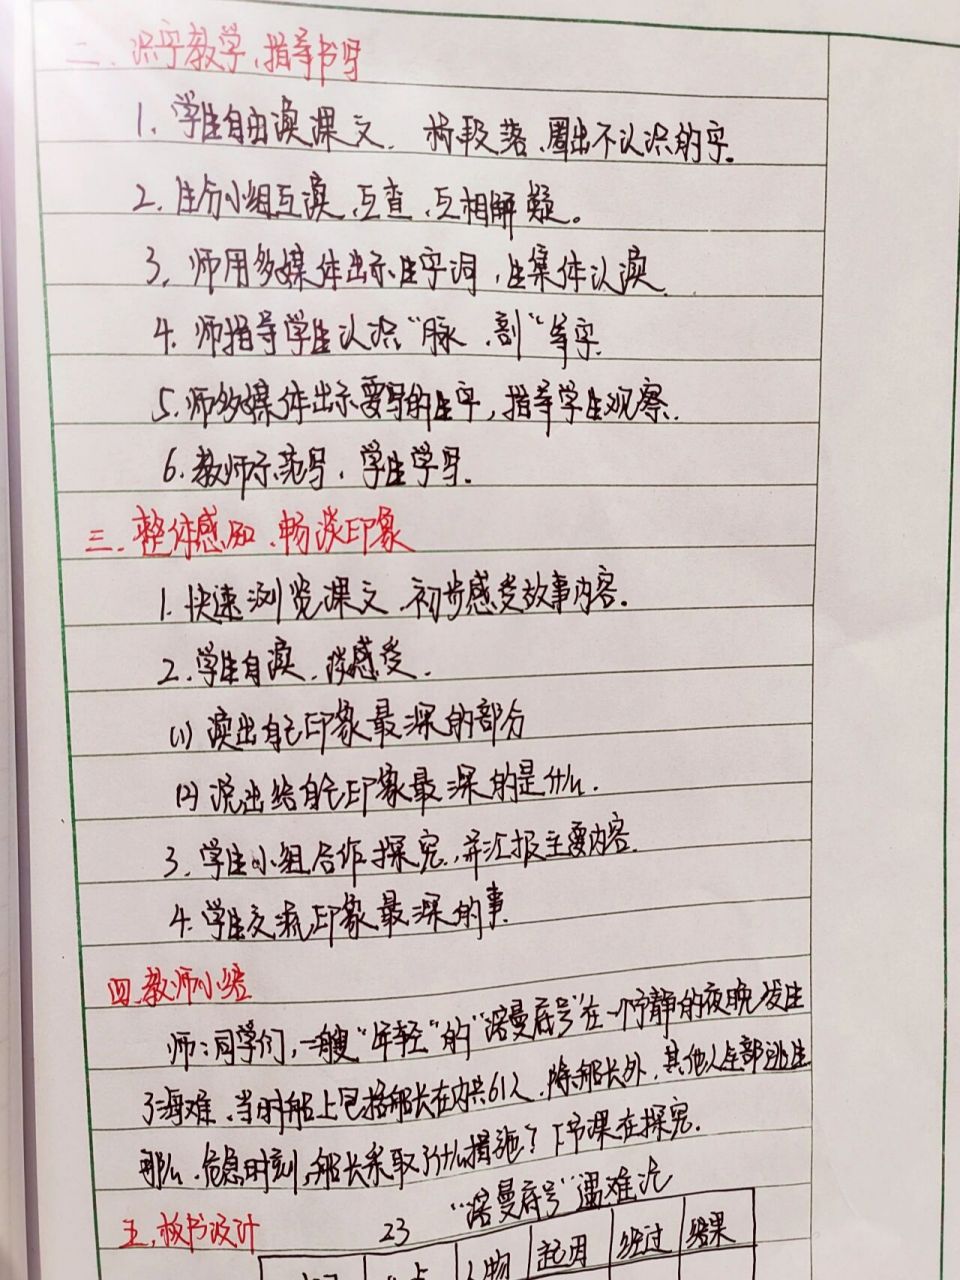 二、识字教学,指导书写
1. 学生自由读课文,标段落,圈出不认识的字.
2. 生分小组互读,互查,互相解疑。
3. 师用多媒体出示生字词,生集体认读.
4. 师指导学生认识“脉、剖”等字.
5. 师多媒体出示要写的生字,指导学生观察.
6. 教师示范写,学生学写.
三、整体感知、畅谈印象
1. 快速浏览课文,初步感受故事内容.
2. 学生自读,谈感受.
(1) 读出自己印象最深的部分
(2) 说出给自己印象最深的是什么.
3. 学生小组合作探究,并汇报主要内容.
4. 学生交流印象最深的事.
四、教师小结
师:同学们,一艘“年轻”的“诺曼底号”在一个宁静的夜晚发生
了海难,当时船上包括船长在内共61人,除船长外,其他人全部逃生
那么,危急时刻,船长采取了什么措施?下节课在探究.
23 “诺曼底号”遇难记
五、板书设计
人物 起因 经过 结果